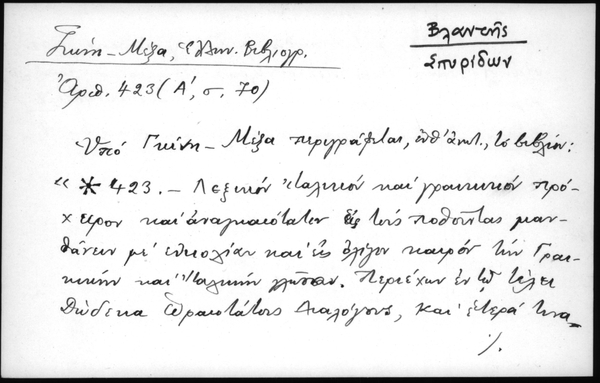 Βλαντῆς
Σπυρίδων
Γκίνη – Μέξα, Ἑλλην. Βιβλιογρ.
Ἀριθ. 423 (Α', σ. 70)
Ὑπό Γκίνη – Μέξα περιγράφεται, τό βιβλίον:
« * 423. – Λεξικόν Ἰταλικόν καί γραικικόν πρό-
χειρον καί ἀναγκαιότατον εἰς τούς ποθοῦντας μαν-
θάνειν μέ εὐκολίαν καί εἰς ὀλίγον καιρόν τήν Γραι-
κικήν καί Ἰταλικήν γλῶσσαν. Περιέχων ἐν τῷ τέλει
δώδεκα ὡραιοτάτους Διαλόγους, καί ἕτερά τινα
./.